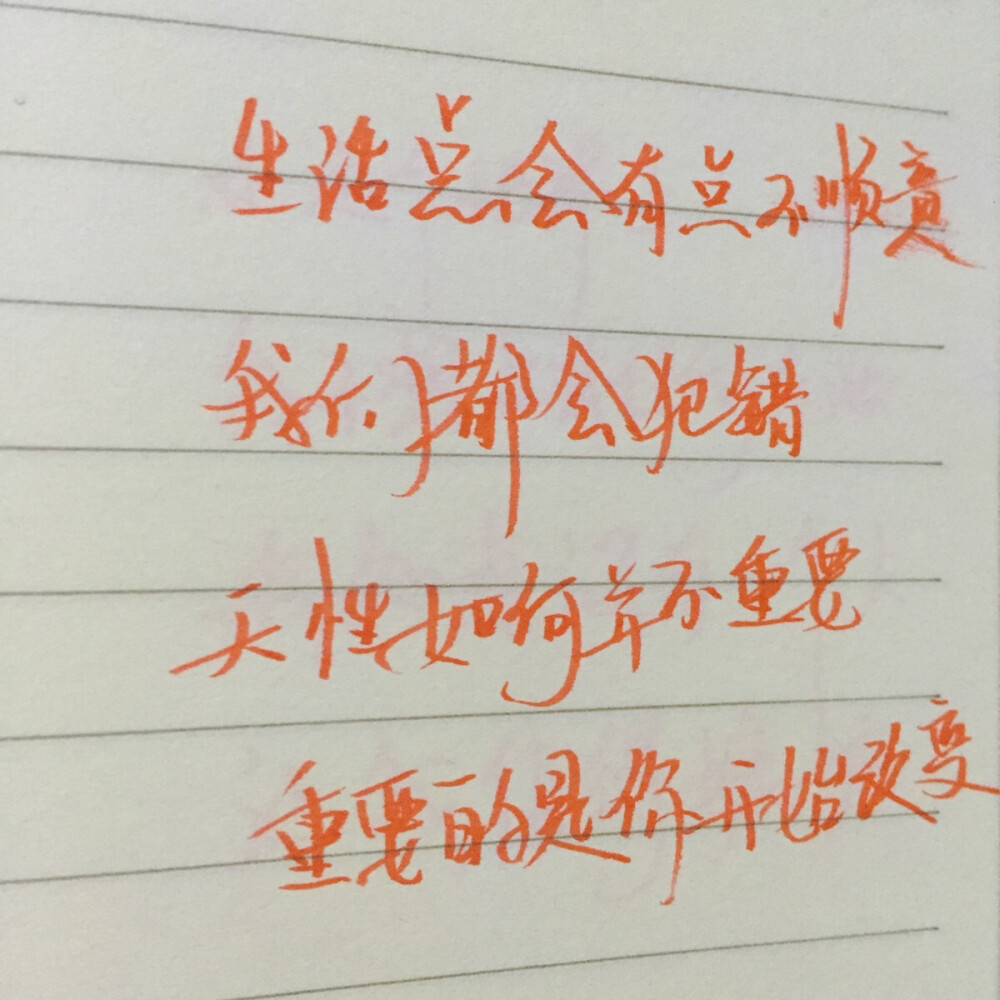 生活总会有点不顺意
我们都会犯错
天性如何并不重要
重要的是你开始改变